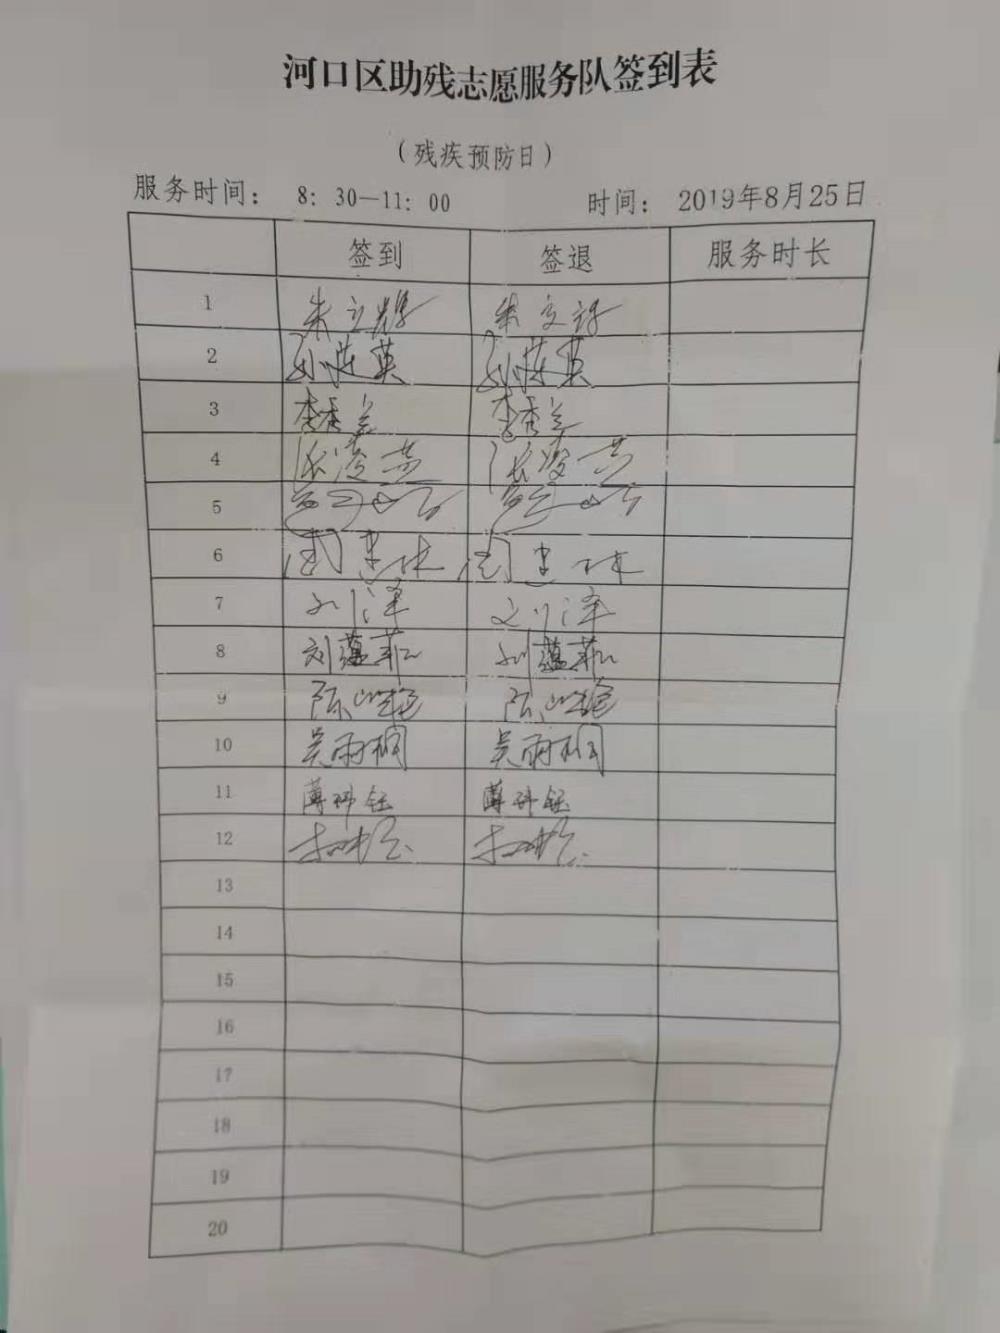 河口区助残志愿服务队签到表
（残疾预防日）
服务时间： 8：30—11：00 时间： 2019年8月25日
签到 签退 服务时长
1 朱立
2 孙 英 孙 英
3 李秀兰 李秀兰
4 张凌燕 张凌燕
5
6 周建林 周建林
7 刘泽 刘泽
8 刘蕴菲 刘蕴菲
9 陈山艳 陈山艳
10 吴雨桐 吴雨桐
11 薄科钰 薄科钰
12
13
14
15
16
17
18
19
20